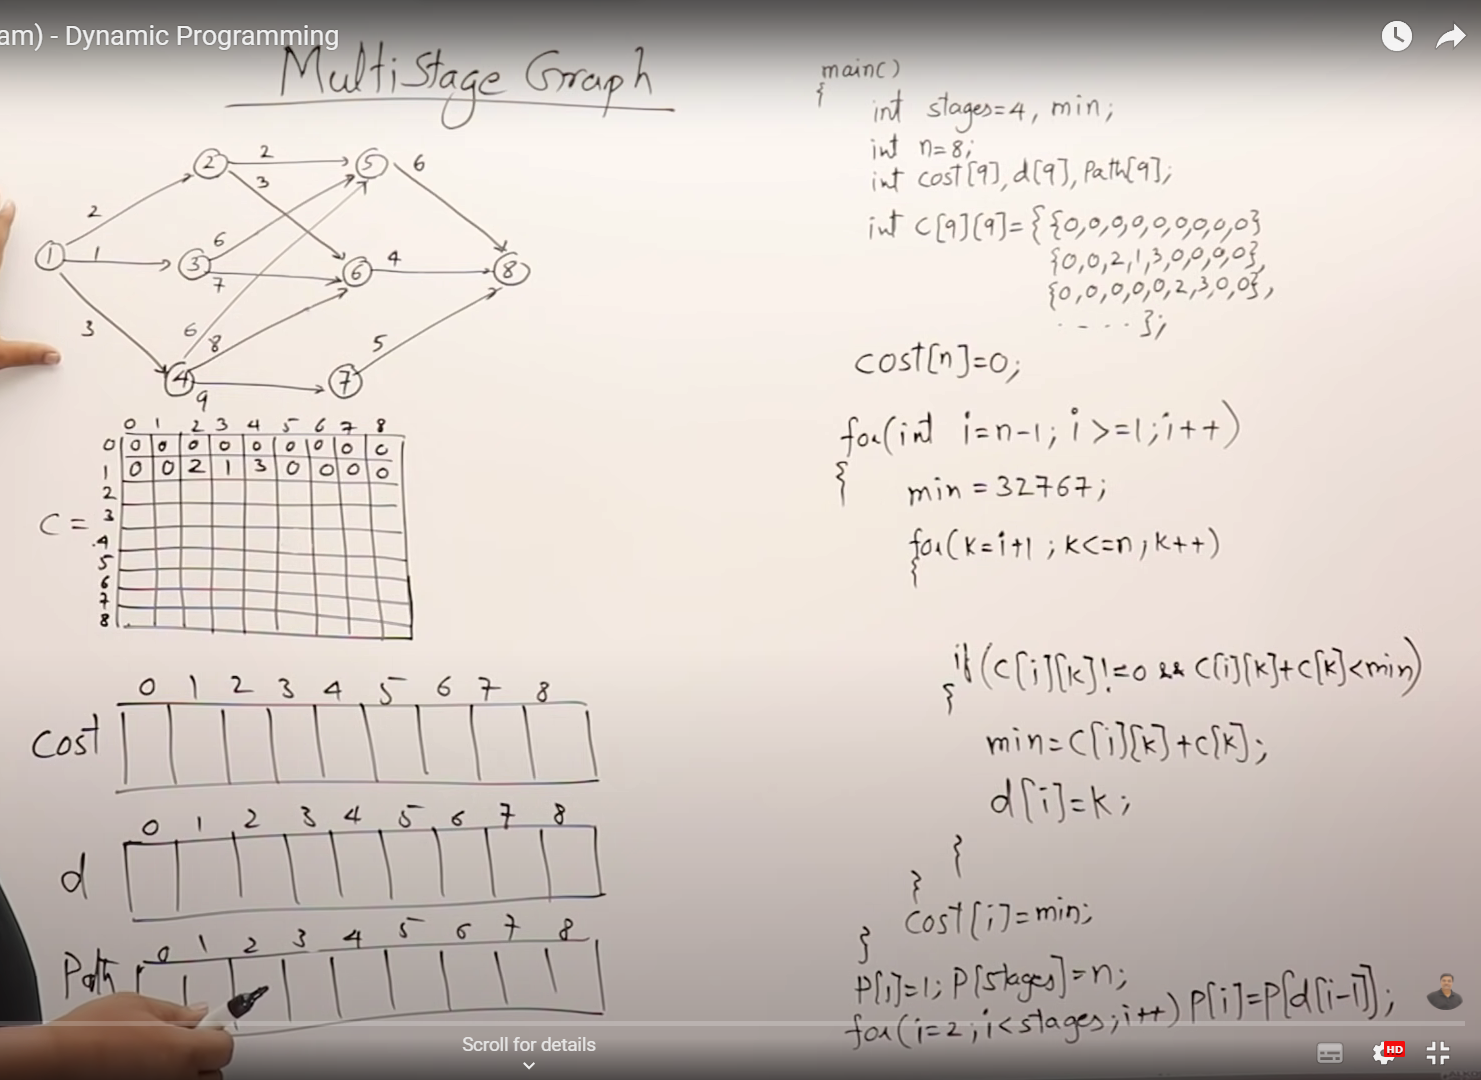 am) - Dynamic Programming
MultiStage Graph
2
2
5
6
3
2
1
1
3
6
7
6
4
8
3
6
8
5
4
9
7
0 1 2 3 4 5 6 7 8
0 0 0 0 0 0 0 0 0 0
1 0 0 2 1 3 0 0 0 0
2
C = 3
4
5
6
7
8
0 1 2 3 4 5 6 7 8
Cost
0 1 2 3 4 5 6 7 8
d
0 1 2 3 4 5 6 7 8
Path
main()
{
int stages=4, min;
int n=8;
int cost[9], d[9], Path[9];
int C[9][9]={{0,0,0,0,0,0,0,0,0}
{0,0,2,1,3,0,0,0,0},
{0,0,0,0,0,2,3,0,0},
....};
cost[n]=0;
for(int i=n-1; i>=1; i++)
{
min=32767;
for(k=i+1; k<=n; k++)
{
if(C[i][k]!=0 && C[i][k]+C[k]<min)
{
min=C[i][k]+C[k];
d[i]=k;
}
}
cost[i]=min;
}
P[1]=1; P[stages]=n;
for(i=2; i<stages; i++) P[i]=P[d[i-1]];
Scroll for details
HD